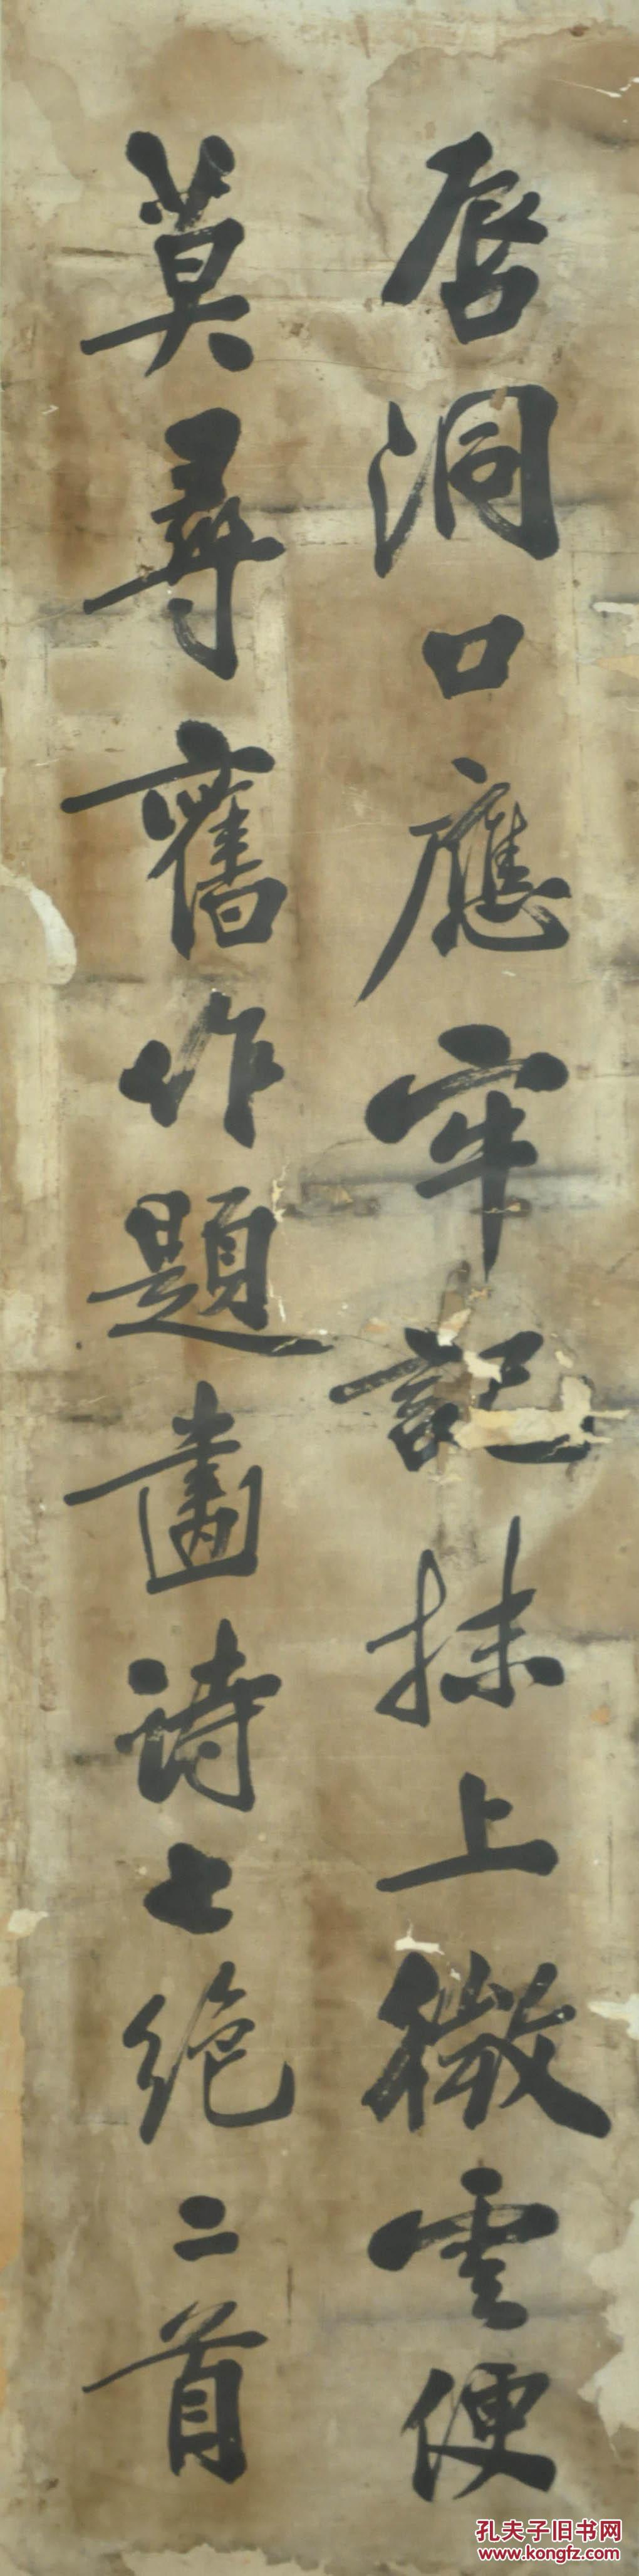 唇洞口應牢記抹上微雲便
莫尋舊作題畫詩七絶二首
孔夫子旧书网
www.kongfz.com